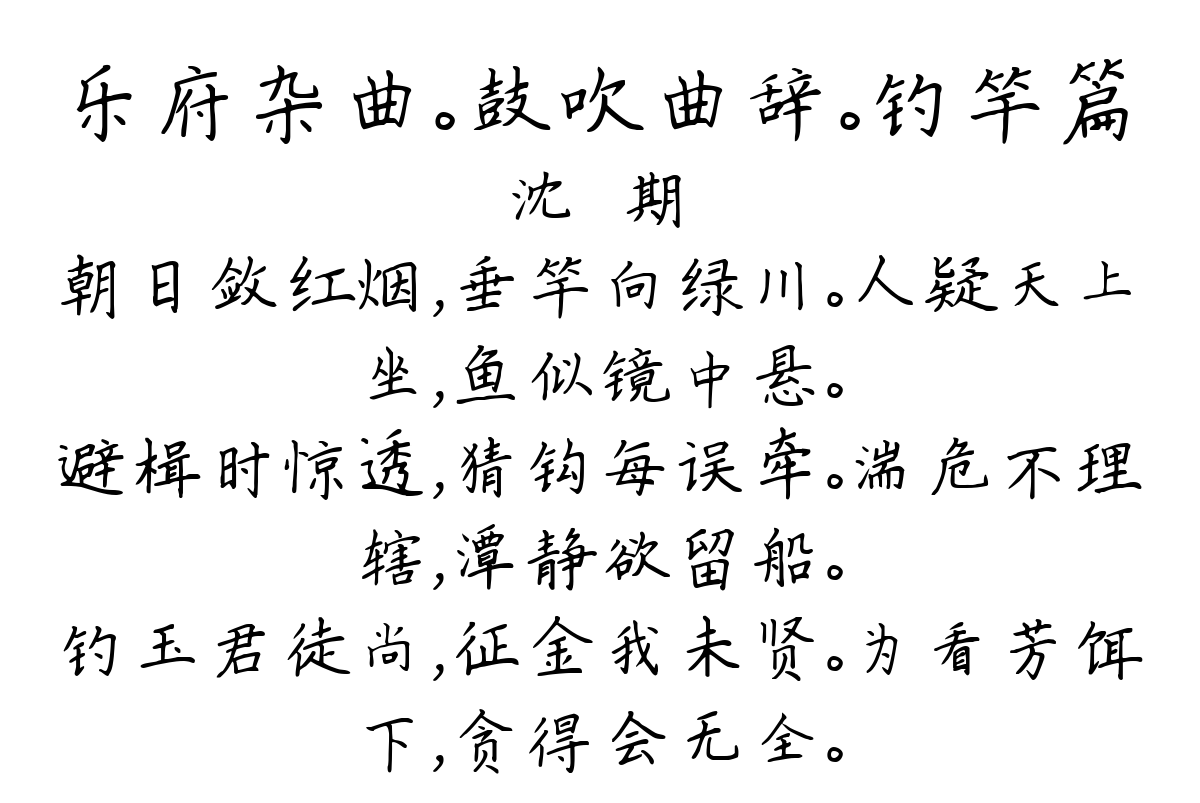 乐府杂曲。鼓吹曲辞。钓竿篇
沈 期
朝日敛红烟,垂竿向绿川。人疑天上
坐,鱼似镜中悬。
避楫时惊透,猜钩每误牵。湍危不理
辖,潭静欲留船。
钓玉君徒尚,征金我未贤。为看芳饵
下,贪得会无全。